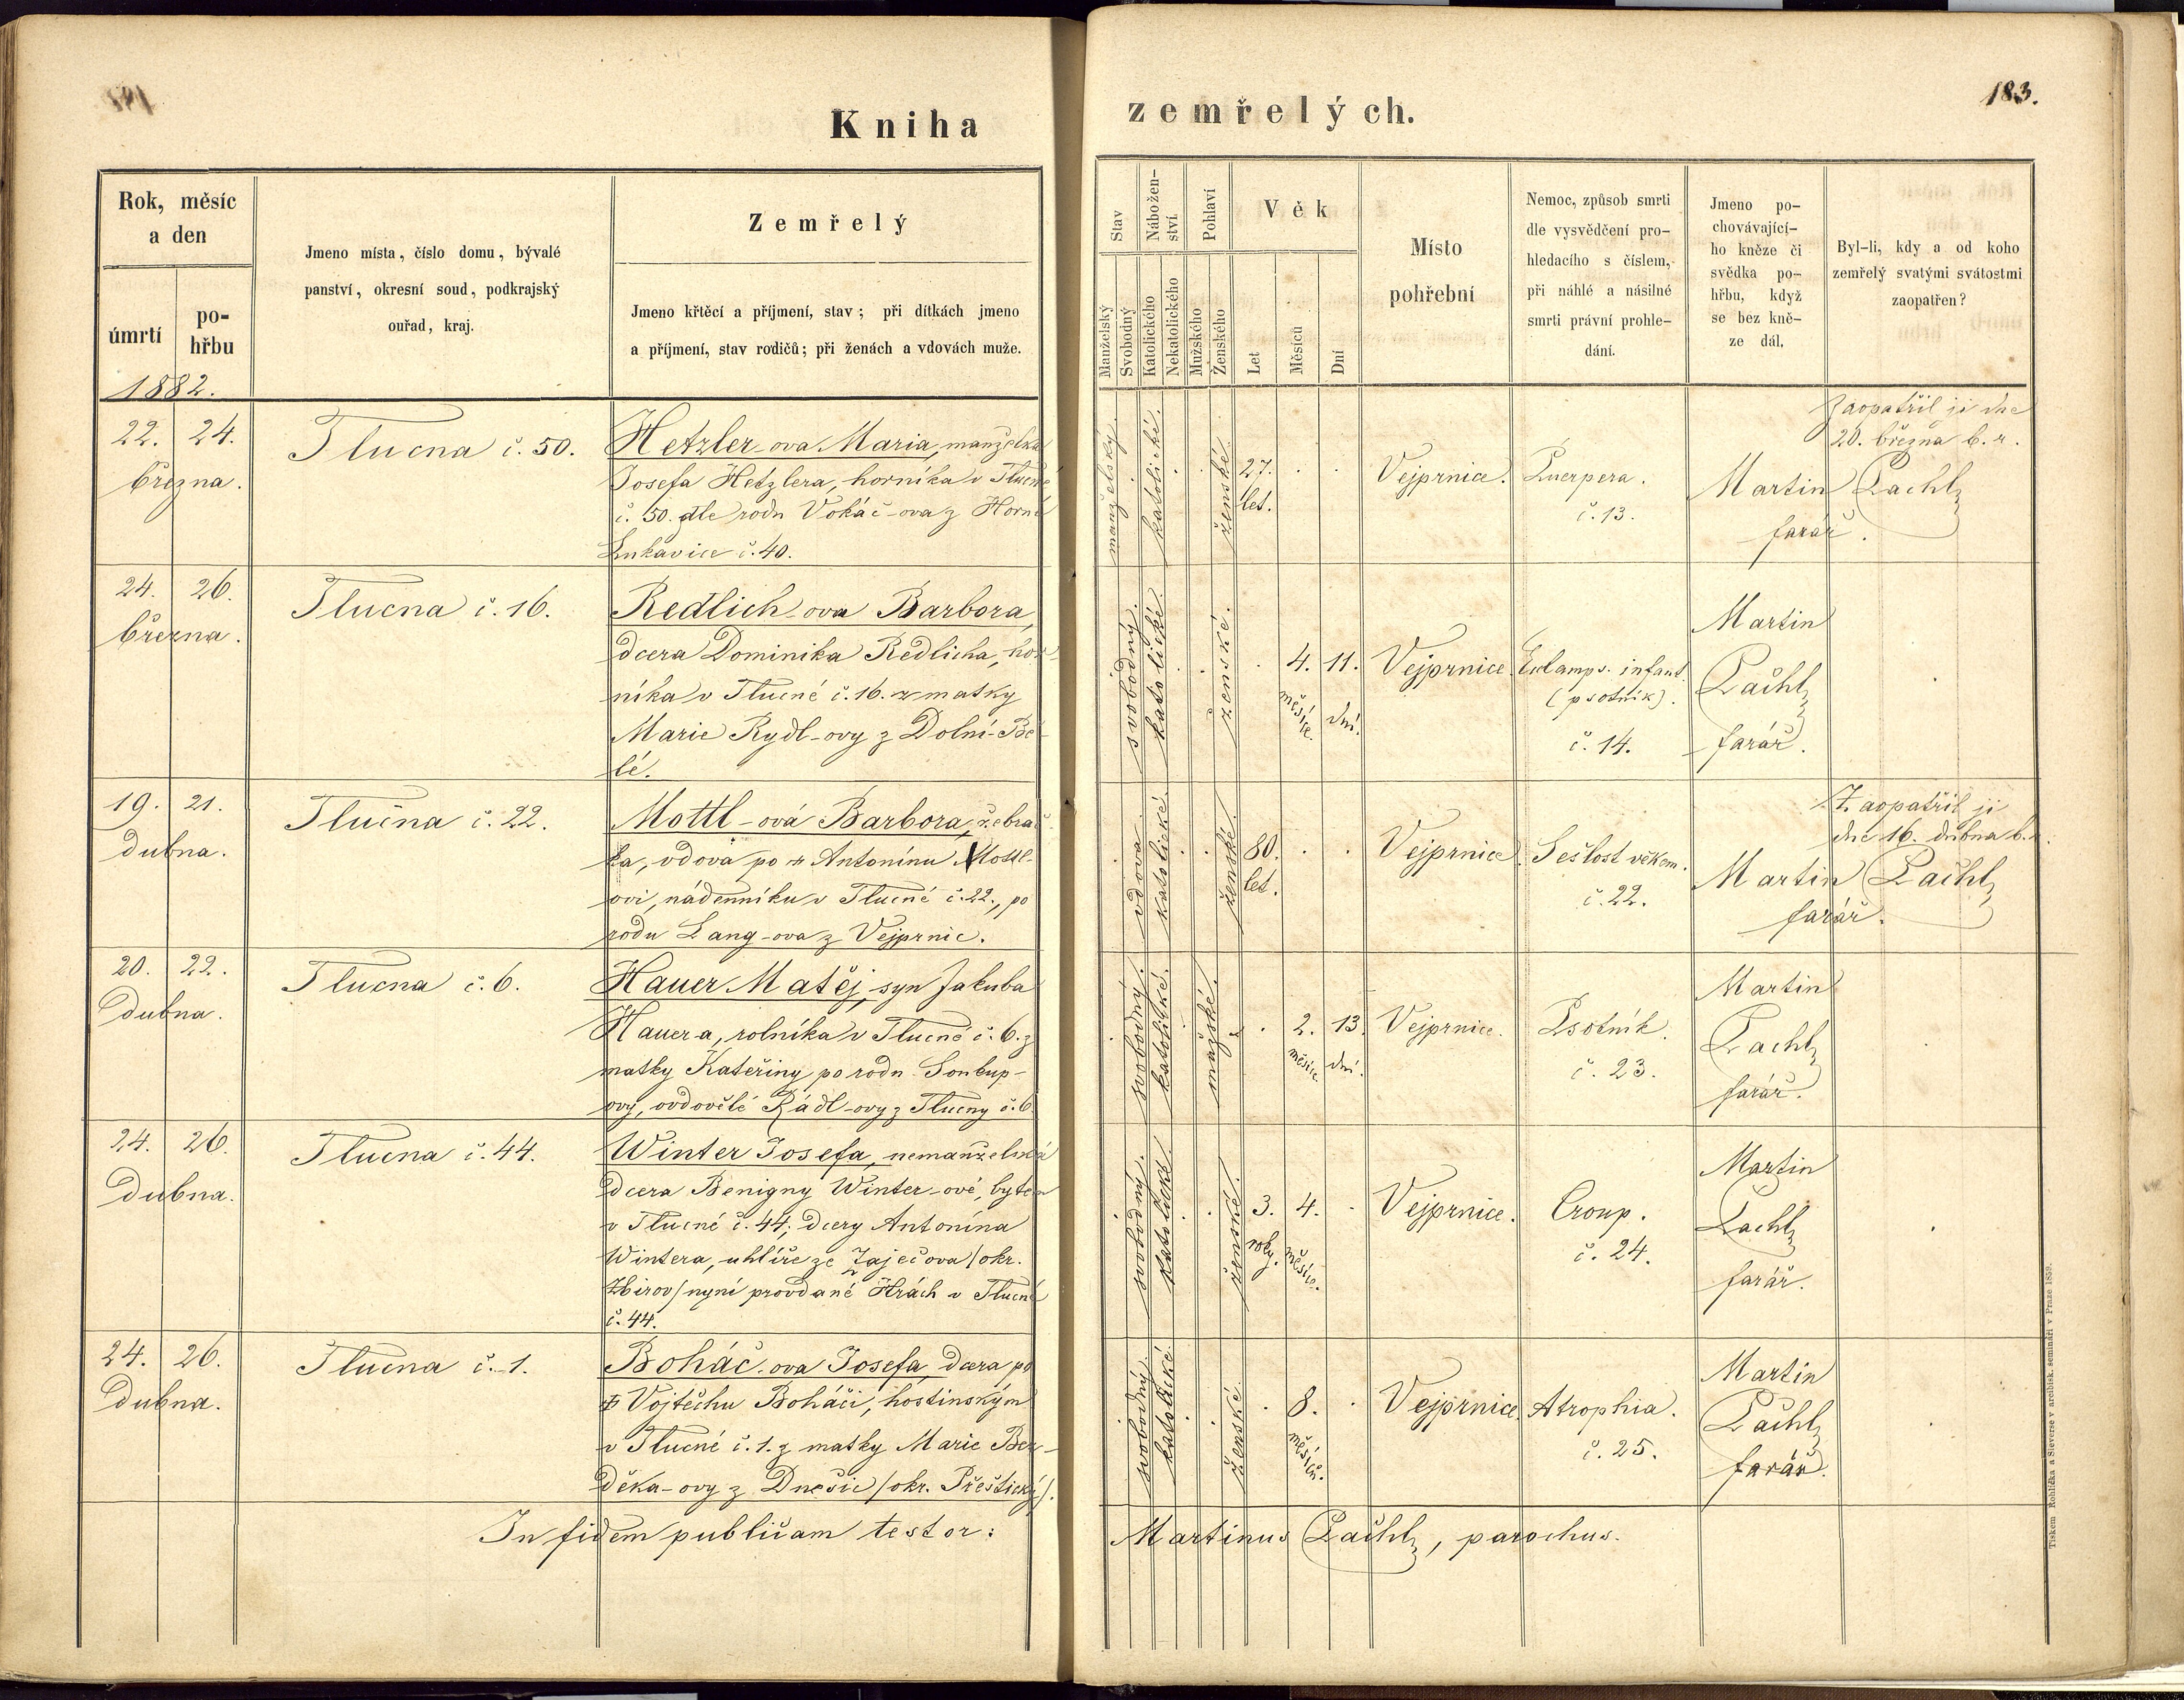 183.
Kniha zemřelých.
Rok, měsíc
a den
úmrtí
po-
hřbu
Jmeno místa, číslo domu, bývalé
panství, okresní soud, podkrajský
ouřad, kraj.
Zemřelý
Jmeno křtěcí a příjmení, stav; při dítkách jmeno
a příjmení, stav rodičů; při ženách a vdovách muže.
Stav
Manželský
Svobodný
Nábožen-
ství
Katolického
Nekatolického
Pohlaví
Mužského
Ženského
Věk
Let
Měsíců
Dní
Místo
pohřební
Nemoc, způsob smrti
dle vysvědčení pro-
hledacího s číslem,
při náhlé a násilné
smrti právní prohle-
dání.
Jmeno po-
chovávající-
ho kněze či
svědka po-
hřbu, když
se bez kně-
ze dál.
Byl-li, kdy a od koho
zemřelý svatými svátostmi
zaopatřen?
1882.
22. 24.
března.
Tlucna č. 50.
Hetzler-ova Maria, manželka
Josefa Hetzlera, horníka v Tlucné
č. 50. dle rodu Vokáč-ova z Horné
Lukavice č. 40.
manželský.
katolické.
ženské.
27.
let.
Vejprnice.
Puerpera.
č. 13.
Zaopatřil ji dne
20. března b. r.
Martin Pachl
farář.
24. 26.
března.
Tlucna č. 16.
Redlich-ova Barbora,
dcera Dominika Redlicha, hor-
níka v Tlucné č. 16. z matky
Marie Rydl-ovy z Dolní-Bě-
lé.
svobodný.
katolické.
ženské.
4. 11.
měsíce. dní.
Vejprnice.
Eclamps. infant.
(psotník).
č. 14.
Martin
Pachl
farář.
19. 21.
dubna.
Tlučna č. 22.
Mottl-ová Barbora, žebrač-
ka, vdova po Antonínu Mottl-
ovi, nádenníku v Tlucné č. 22., po
rodu Lang-ova z Vejprnic.
vdova.
katolické.
ženské.
80.
let.
Vejprnice.
Sešlost věkem.
č. 22.
Zaopatřil ji
dne 16. dubna b. r.
Martin Pachl
farář.
20. 22.
Dubna.
Tlucna č. 6.
Hauer Matěj, syn Jakuba
Hauer-a, rolníka v Tlucné č. 6. z
matky Kateřiny po rodu Soukup-
ovy, ovdovělé Rádl-ovy z Tlucny č. 6.
svobodný.
katolické.
mužské.
2. 13.
měsíce. dní.
Vejprnice.
Psotník.
č. 23.
Martin
Pachl
farář.
24. 26.
Dubna.
Tlucna č. 44.
Winter Josefa, nemanželská
dcera Benigny Winter-ové, bytem
v Tlucné č. 44, dcery Antonína
Wintera, uhlíře ze Zaječova /okr.
Zbirov/ nyní provdané Hrách v Tlucné
č. 44.
svobodný.
katolické.
ženské.
3. 4.
roky. měsíce.
Vejprnice.
Croup.
č. 24.
Martin
Pachl
farář.
24. 26.
Dubna.
Tlucna č. 1.
Boháč-ova Josefa, dcera po
Vojtěchu Boháči, hostinským
v Tlucné č. 1. z matky Marie Bez-
děka-ovy z Dnešic /okr. Přeštický/.
svobodný.
katolické.
ženské.
8.
měsíců.
Vejprnice.
Atrophia.
č. 25.
Martin
Pachl
farář.
In fidem publicam testor: Martinus Pachl, parochus.
Tiskem Rohlíčka a Sieverse v arcibisk. semináři v Praze 1859.